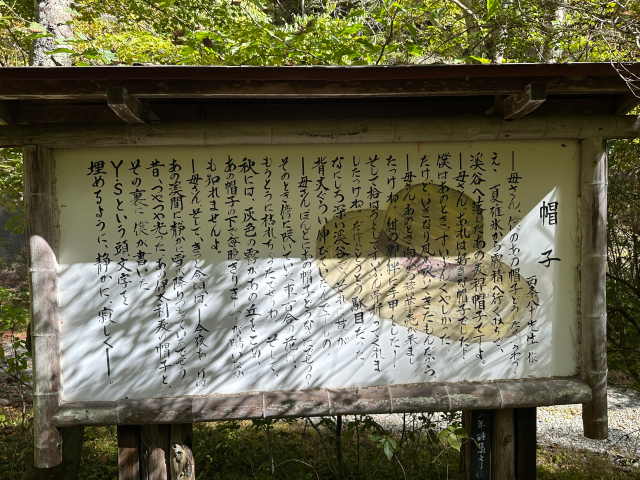 帽子
西条八十先生作
―母さん、僕のあの帽子どうしたでせうね？
え、夏碓氷から霧積へ行くみちで、
渓谷へ落したあの麦稈帽子ですよ。
―母さん、あれは好きな帽子でしたよ。
僕はあのとき、ずいぶんくやしかった。
だけどいきなり風が吹いてきたもんだから。
―母さん、あのとき向から若い薬売が来まし
たっけね。紺の脚絆に手甲をした―
そして拾はうとしてずいぶん骨折ってくれま
したっけね。だけどたうとう駄目だった。
なにしろ深い渓谷で、それに草が
背丈ぐらい伸びていたんですもの。
―母さんほんとにあの帽子どうなったでせう？
そのとき傍に咲いていた車百合の花は、
もうとうに枯れちゃったでせうね、そして、
秋には、灰色の霧があの丘をこめ、
あの帽子の下で毎晩きりぎりすが鳴いたか
も知れませんよ。
―母さん、そしてきっと今頃は―今夜あたりは、
あの渓間に静かに雪が降りつもっているでせう
昔、つやつや光ったあの伊太利麦の帽子と、
その裏に僕が書いた
YSという頭文字を
埋めるように、静かに寂しく―